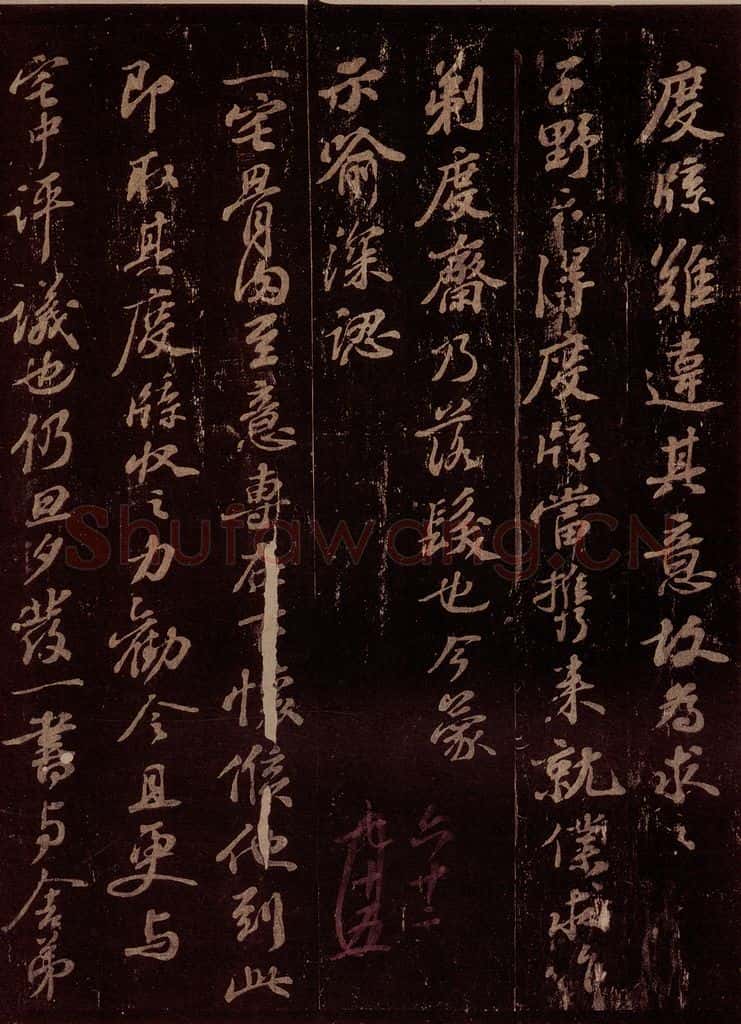 度牒難違其意故為求之
子野云得度牒當攜來就僕求作
剃度齋乃落髮也今蒙
示喻深認
一宅骨肉至意專在下懷候他到此
即取其度牒收之力勸令且更与
宅中評議也仍旦夕發一書与舍弟
六廿二
九十五
Shufawang.CN